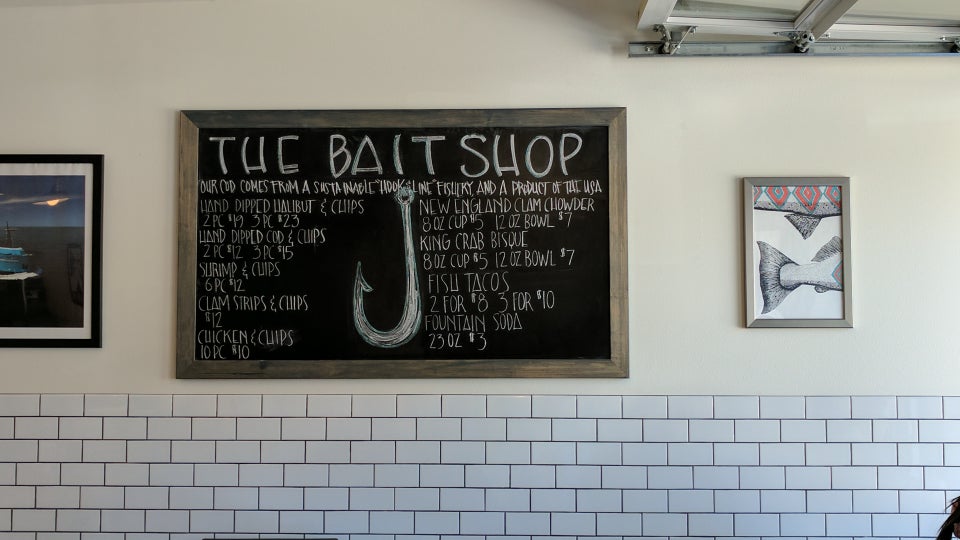 THE BAIT SHOP
OUR COD COMES FROM A SUSTAINABLE "HOOK & LINE" FISHERY, AND A PRODUCT OF THE USA
HAND DIPPED HALIBUT & CHIPS
2 PC $19 3 PC $23
HAND DIPPED COD & CHIPS
2 PC $12 3 PC $15
SHRIMP & CHIPS
6 PC $12
CLAM STRIPS & CHIPS
$12
CHICKEN & CHIPS
10 PC $10
NEW ENGLAND CLAM CHOWDER
8 OZ CUP $5 12 OZ BOWL $7
KING CRAB BISQUE
8 OZ CUP $5 12 OZ BOWL $7
FISH TACOS
2 FOR $8 3 FOR $10
FOUNTAIN SODA
23 OZ $3